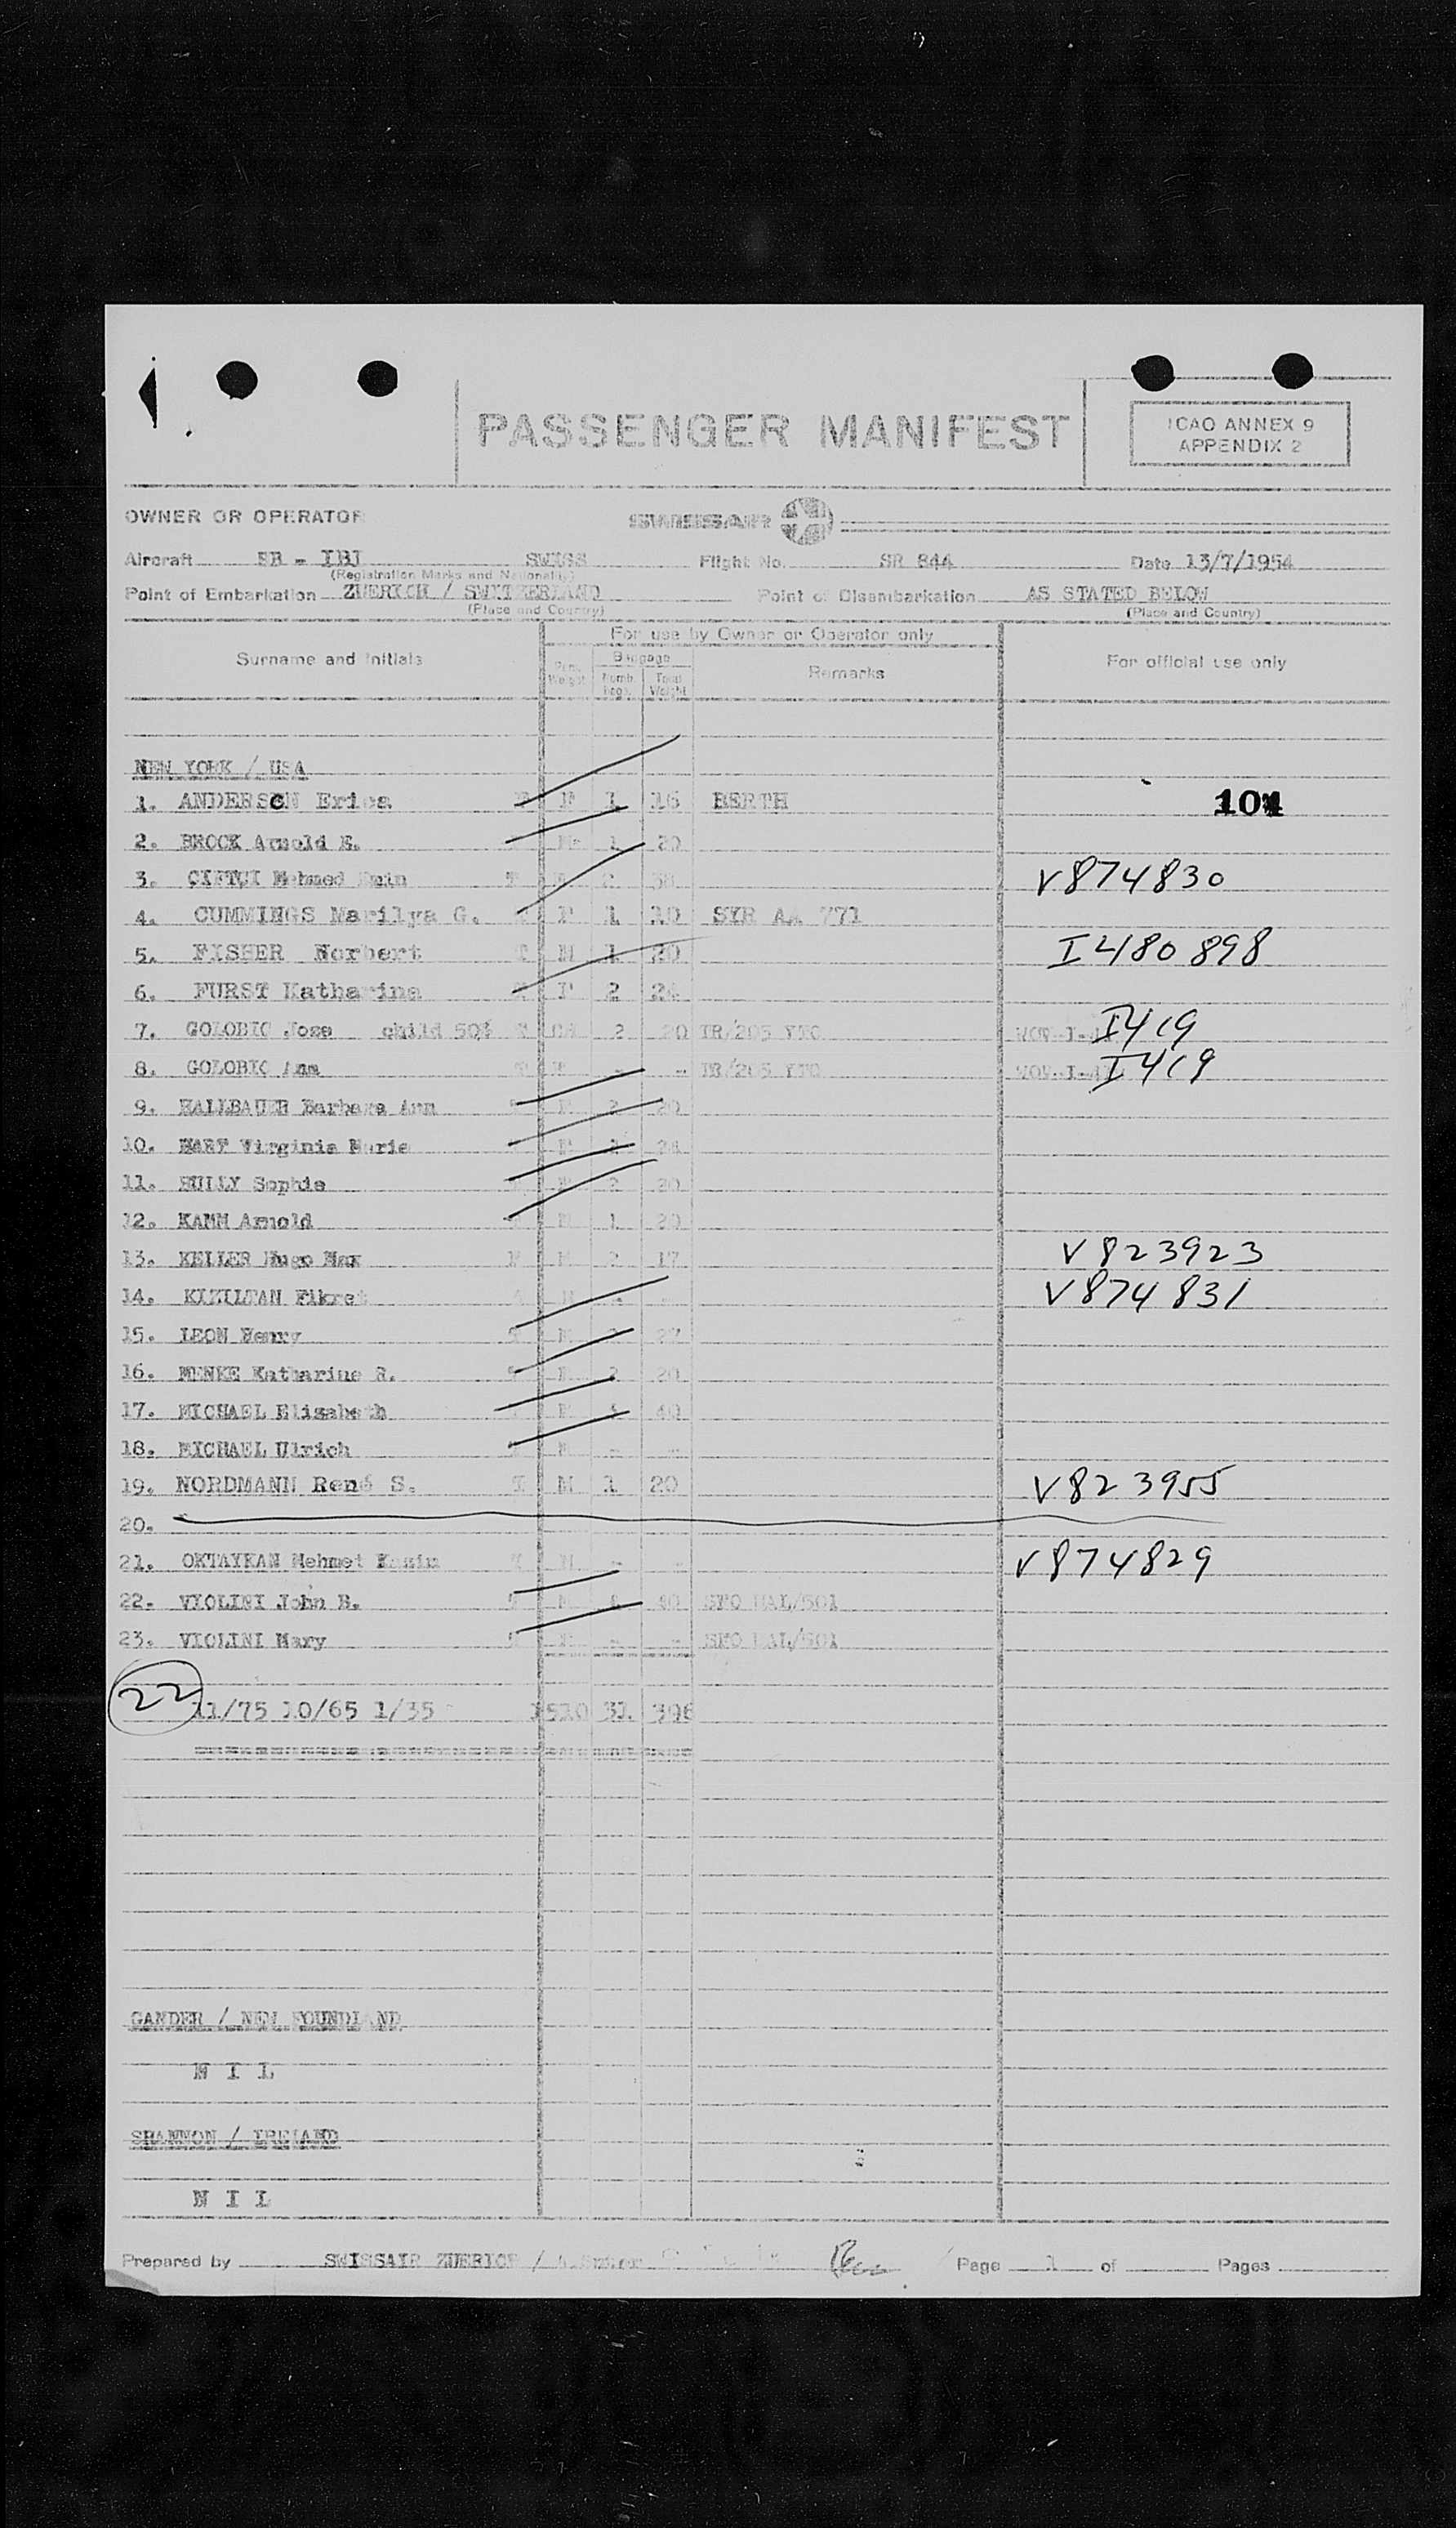 PASSENGER MANIFEST
ICAO ANNEX 9
APPENDIX 2
OWNER OR OPERATOR SWISSAIR
Aircraft SWISS Flight No. SR 844 Date 13/7/1954
(Registration Marks and Nationality)
Point of Embarkation ZUERICH / SWITZERLAND Point of Disembarkation AS STATED BELOW
(Place and Country) (Place and Country)
For use by Owner or Operator only
Surname and Initials Baggage Remarks For official use only
Weight Numb. Total Weight
NEW YORK / USA
1. ANDERSON Erica F 1 16 BERTH 101
2. BROCK Arnold E. 1 20
3. CIFTCI Mehmed Emin 2 V874830
4. CUMMINGS Marilyn G. F 1 10 SYR AA 771
5. FISHER Norbert M 1 20 I480898
6. FURST Katharina F 2 24
7. GOLOBIC Joze child 50% 2 20 I419
8. GOLOBIC Ana - - I419
9. HALLBAUER Barbara Ann F 2 20
10. HART Virginia Marie F
11. HULLY Sophie 2 20
12. KAMM Arnold M 1 20
13. KELLER Hugo Max M 2 17 V823923
14. KIZILTAN Fikret M V874831
15. LEON Henry M
16. MENKE Katharine R. F 2 20
17. MICHAEL Elisabeth F 40
18. MICHAEL Ulrich M - -
19. NORDMANN René S. T M 1 20 V823955
20.
21. OKTAYKAN Mehmet M - - V874829
22. VIOLINI John B. M 40 SFO UAL/501
23. VIOLINI Mary F - - SFO UAL/501
22 11/75 10/65 1/35 1510 31 396
GANDER / NEW FOUNDLAND
N I L
SHANNON / IRELAND
N I L
Prepared by SWISSAIR ZUERICH / Page 1 of Pages